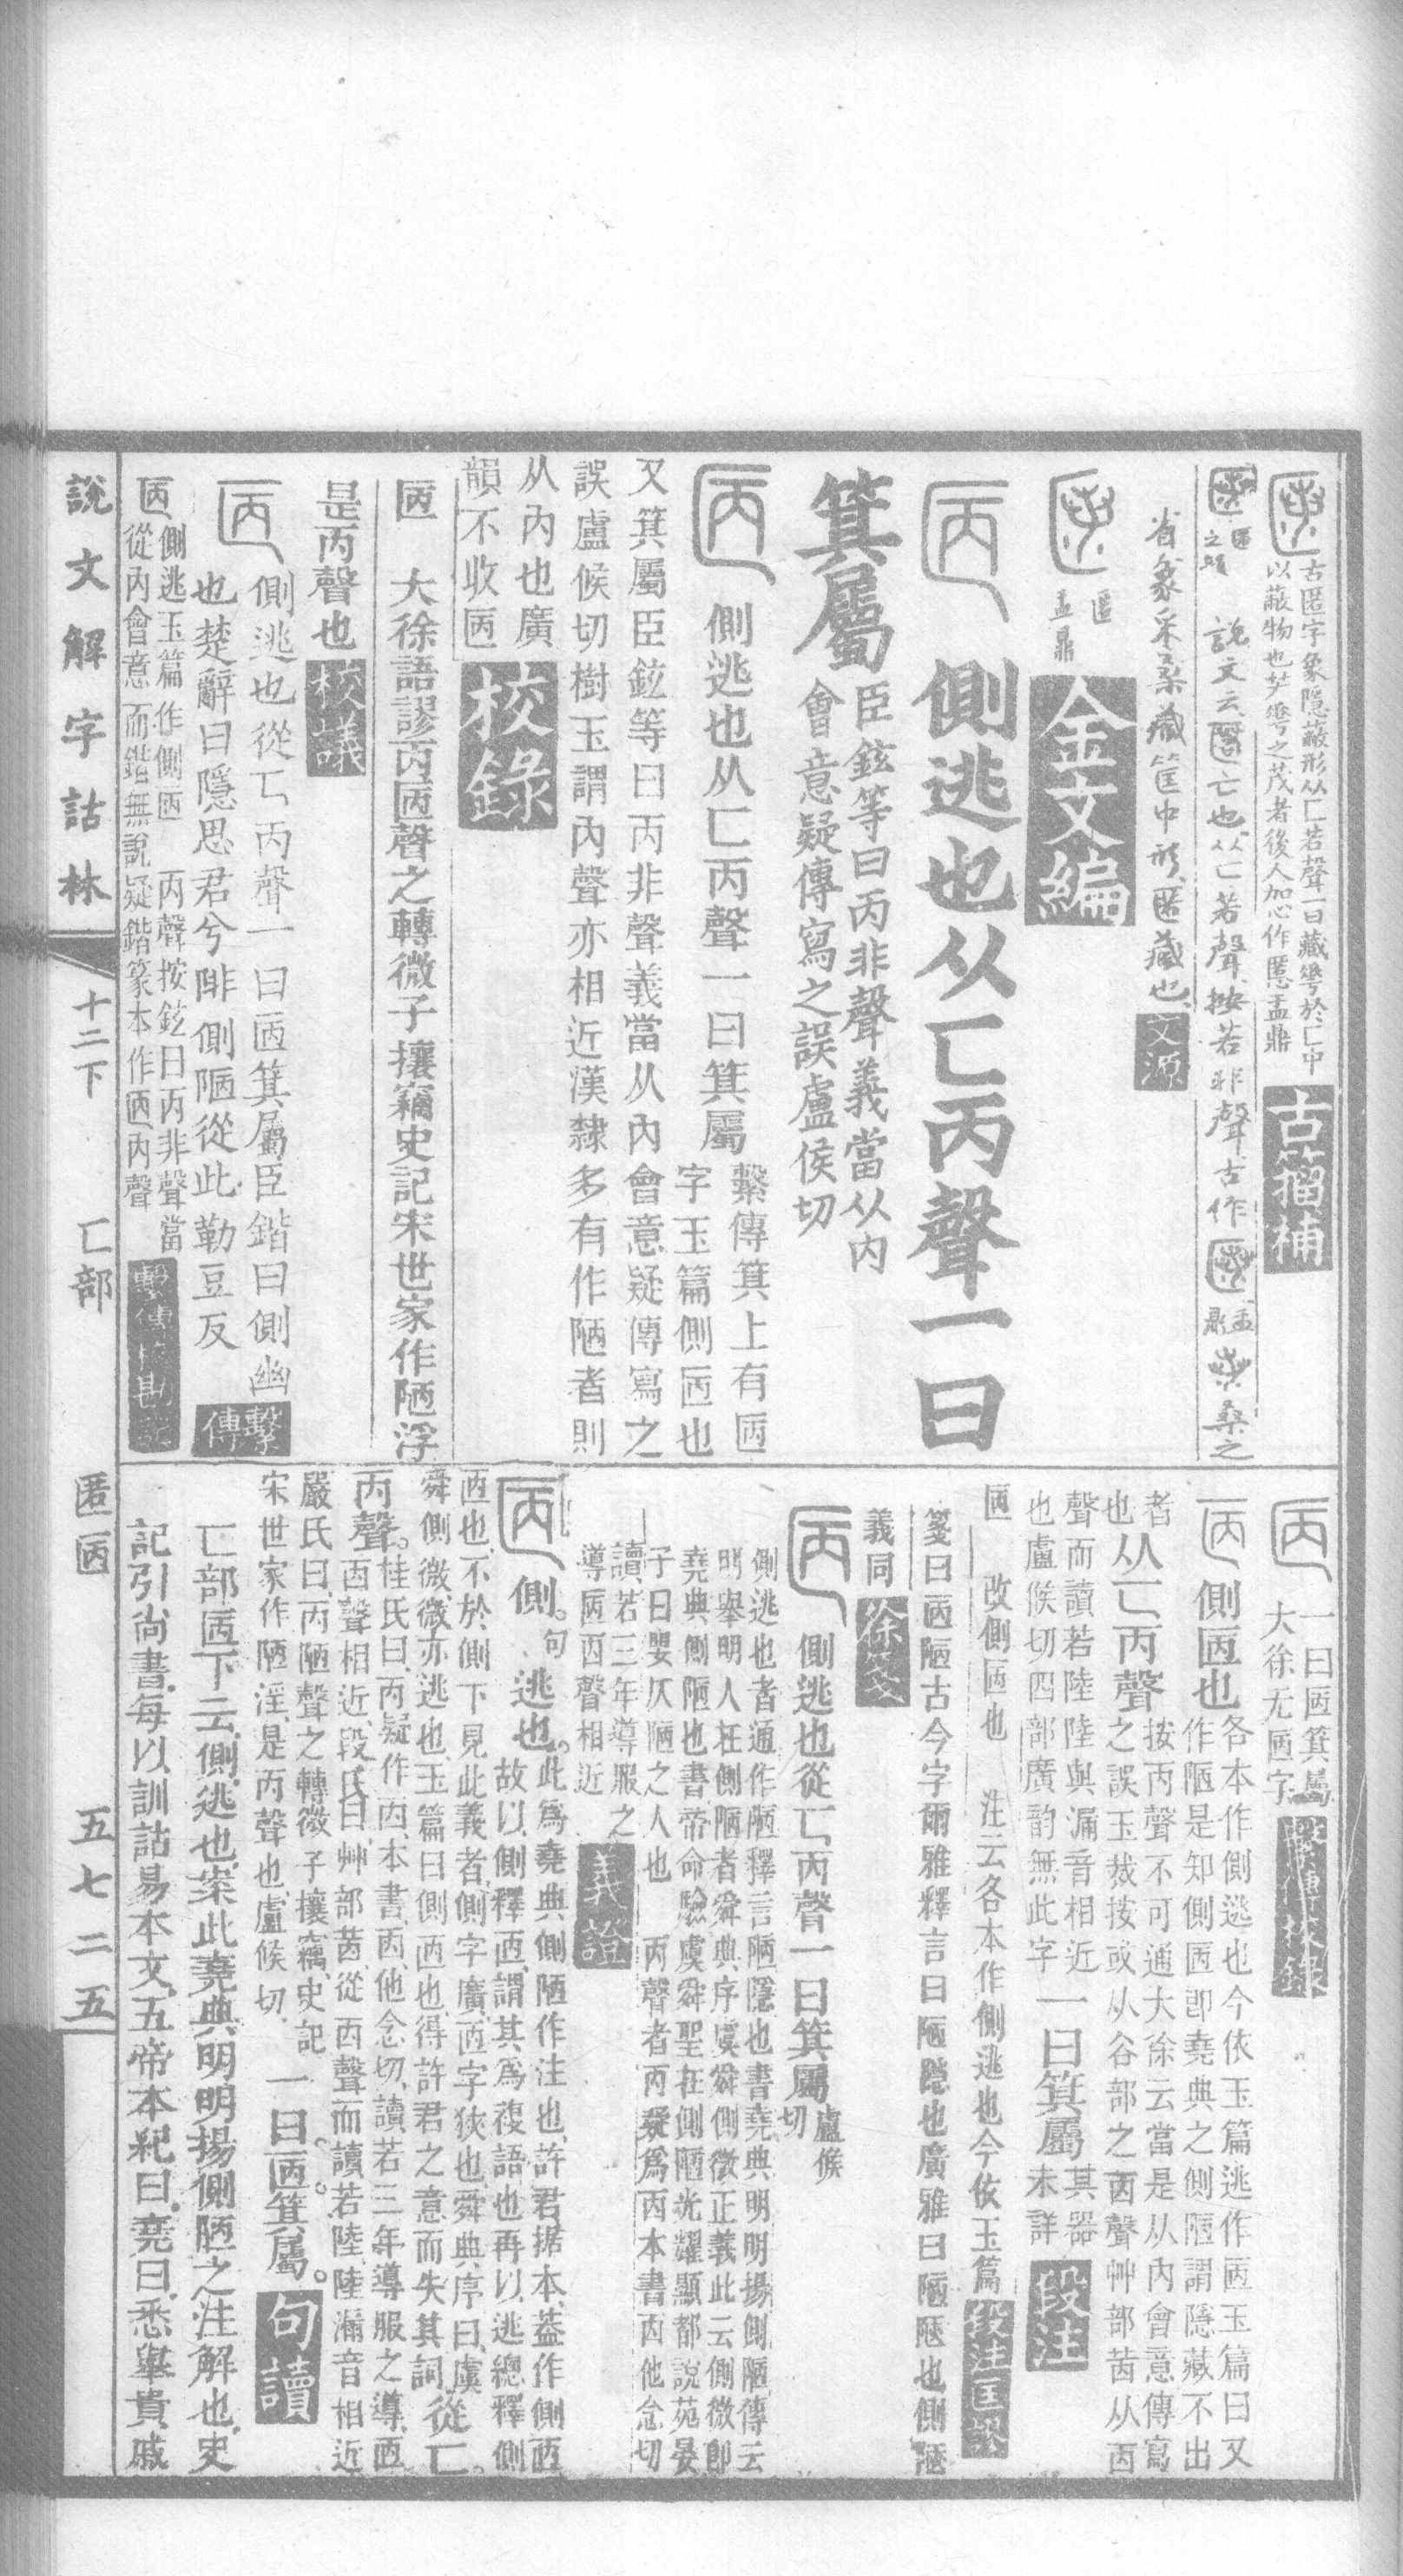 古匿字象隱蔽形从匸若聲一曰藏䓆於匸中
以蔽物也艸䓆之茂者後人加心作匿盂鼎
古籀補
說文云匿亡也从匸若聲按若非聲古作
盂鼎
桑之
省象采桑藏筐中形匿藏也
文源
匿
盂鼎
金文編
側逃也从匸丙聲一曰
箕屬
臣鉉等曰丙非聲義當从內
會意疑傳寫之誤盧侯切
側逃也从匸丙聲一曰箕屬
繫傳箕上有㔷
字玉篇側㔷也
又箕屬臣鉉等曰丙非聲義當从內會意疑傳寫之
誤盧候切樹玉謂內聲亦相近漢隸多有作陋者則
从內也廣
韻不收㔷
校錄
㔷
大徐語謬丙㔷聲之轉微子攘竊史記宋世家作陋浮
是丙聲也
校議
側逃也從匸丙聲一曰㔷箕屬臣鍇曰側幽
也楚辭曰隱思君兮陫側陋從此勒豆反
繫傳
㔷
側逃玉篇作側㔷
丙聲按鉉曰丙非聲當
從內會意而鍇無說疑鍇篆本作㔷內聲
繫傳校勘記
一曰㔷箕屬
大徐无㔷字
繫傳校錄
側㔷也
各本作側逃也今依玉篇逃作㔷玉篇曰又
作陋是知側㔷卽堯典之側陋謂隱藏不出
者
也
从匸丙聲
按丙聲不可通大徐云當是从內會意傳寫
之誤玉裁按或从谷部之㐁聲艸部茵从㐁
聲而讀若陸陸與漏音相近
也盧候切四部廣韵無此字
一曰箕屬
其器
未詳
段注
㔷
改側㔷也
注云各本作側逃也今依玉篇
段注匡謬
箋曰㔷陋古今字爾雅釋言曰陋隱也廣雅曰陋陋也側陋
義同
徐箋
側逃也從匸丙聲一曰箕屬
盧候
切
側逃也者通作陋釋言陋隱也書堯典明明揚側陋傳云
明舉明人在側陋者舜典序虞舜側微正義此云側微卽
堯典側陋也書帝命驗虞舜聖在側陋光耀顯都說苑晏
子曰嬰仄陋之人也
丙聲者丙疑爲㐁本書㐁他念切
讀若三年導服之
導㔷㐁聲相近
義證
側句逃也
此爲堯典側陋作注也許君据本葢作側㔷
故以側釋㔷謂其爲複語也再以逃總釋側
㔷也不於側下見此義者側字廣㔷字狹也舜典序曰虞
舜側微微亦逃也玉篇曰側㔷也得許君之意而失其詞
從匸
丙聲
桂氏曰丙疑作㐁本書㐁他念切讀若三年導服之導㔷
㐁聲相近段氏曰艸部茵從㐁聲而讀若陸陸漏音相近
嚴氏曰丙陋聲之轉微子攘竊史記
宋世家作陋淫是丙聲也盧候切
一曰㔷箕屬
句讀
匸部㔷下云側逃也案此堯典明明揚側陋之注解也史
記引尚書每以訓詁易本文五帝本紀曰堯曰悉舉貴戚
說文解字詁林
十二下
匸部
匿㔷
五七二五